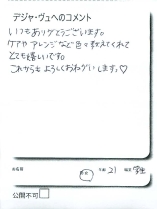 デジャ・ヴュへのコメント
いつもありがとうございます。
ケアやアレンジなど色々教えてくれて
とても嬉しいです。
これからもよろしくおねがいします。♡
お名前
年齢 21 職業 学生
公開不可